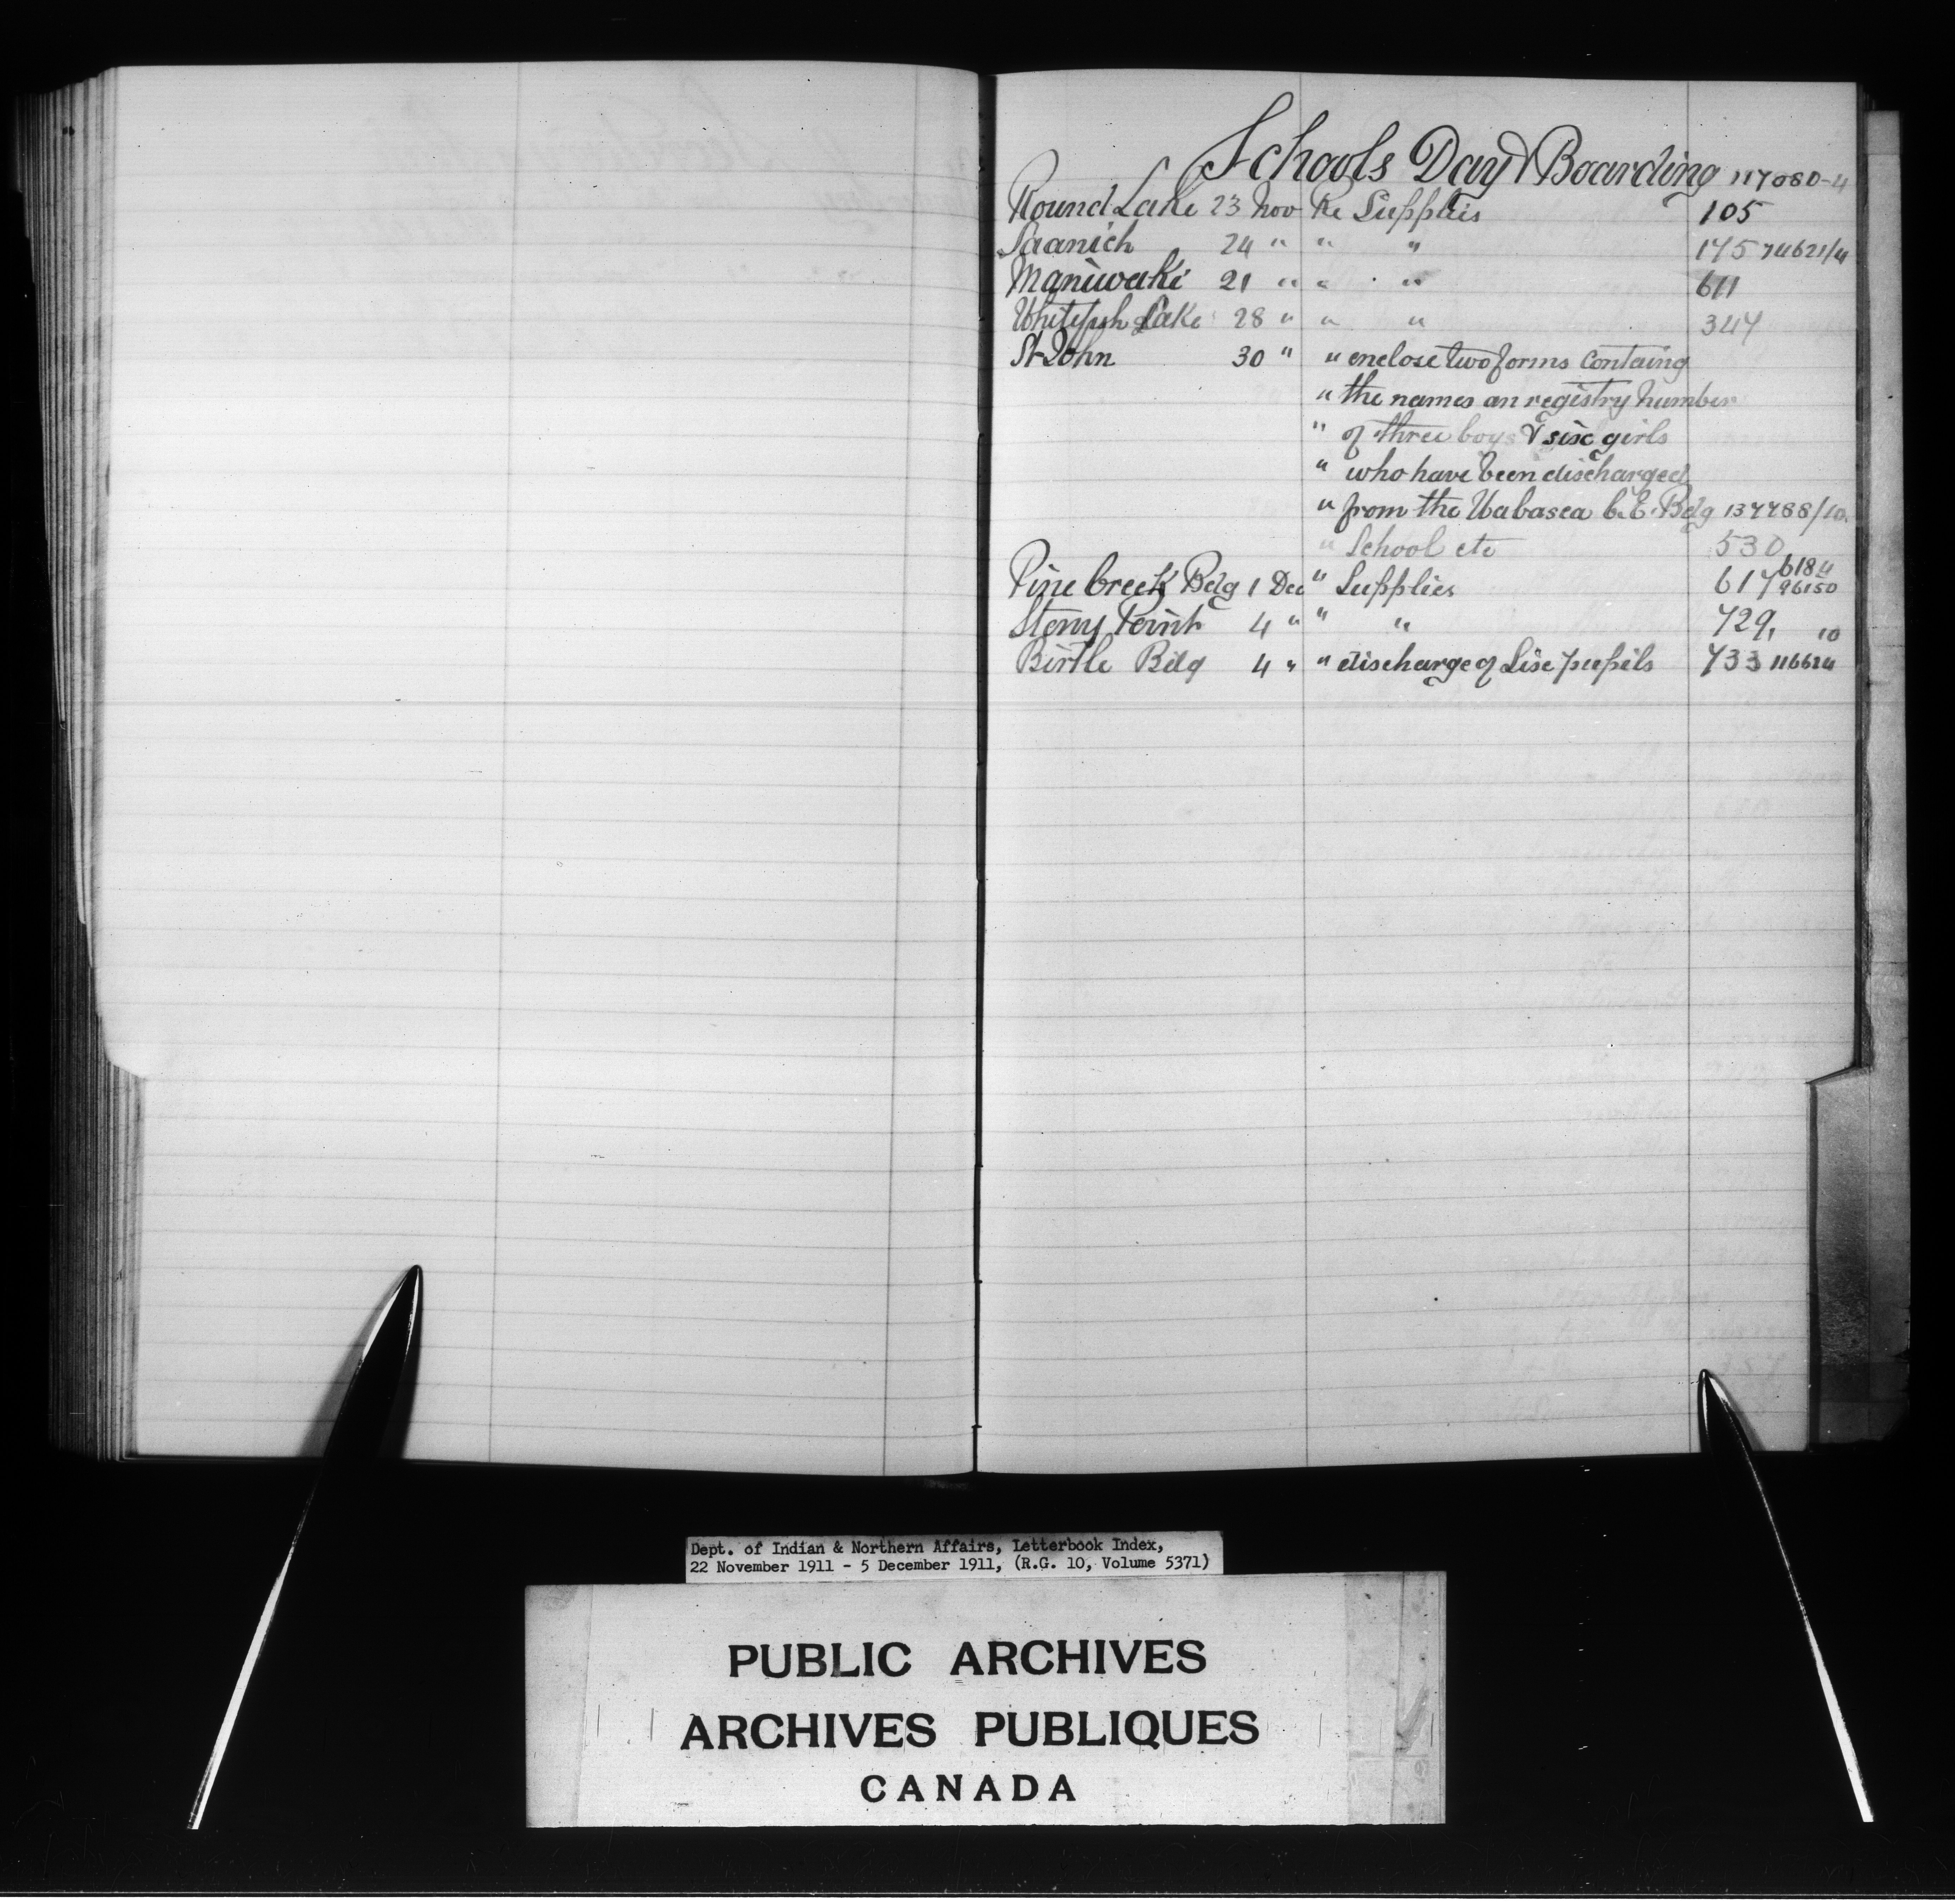 Schools Day & Boarding 117080-4
Round Lake 23 Nov Re Supplies 105
Saanich 24 " " " 175 74621/4
Maniwaki 21 " " " 611
Whitefish Lake 28 " " " 347
St John 30 " " enclose two forms containg
" the names an registry number
" of three boys & six girls
" who have been discharged
" from the Wabasca C.E. Bdg 137788/10
" School etc 530
Pine Creek Bdg 1 Dec " Supplies 617 6184 96150
Stony Point 4 " " " 729, 10
Birtle Bdg 4 " " discharge of Six pupils 733 116624
Dept. of Indian & Northern Affairs, Letterbook Index,
22 November 1911 - 5 December 1911, (R.G. 10, Volume 5371)
PUBLIC ARCHIVES
ARCHIVES PUBLIQUES
CANADA